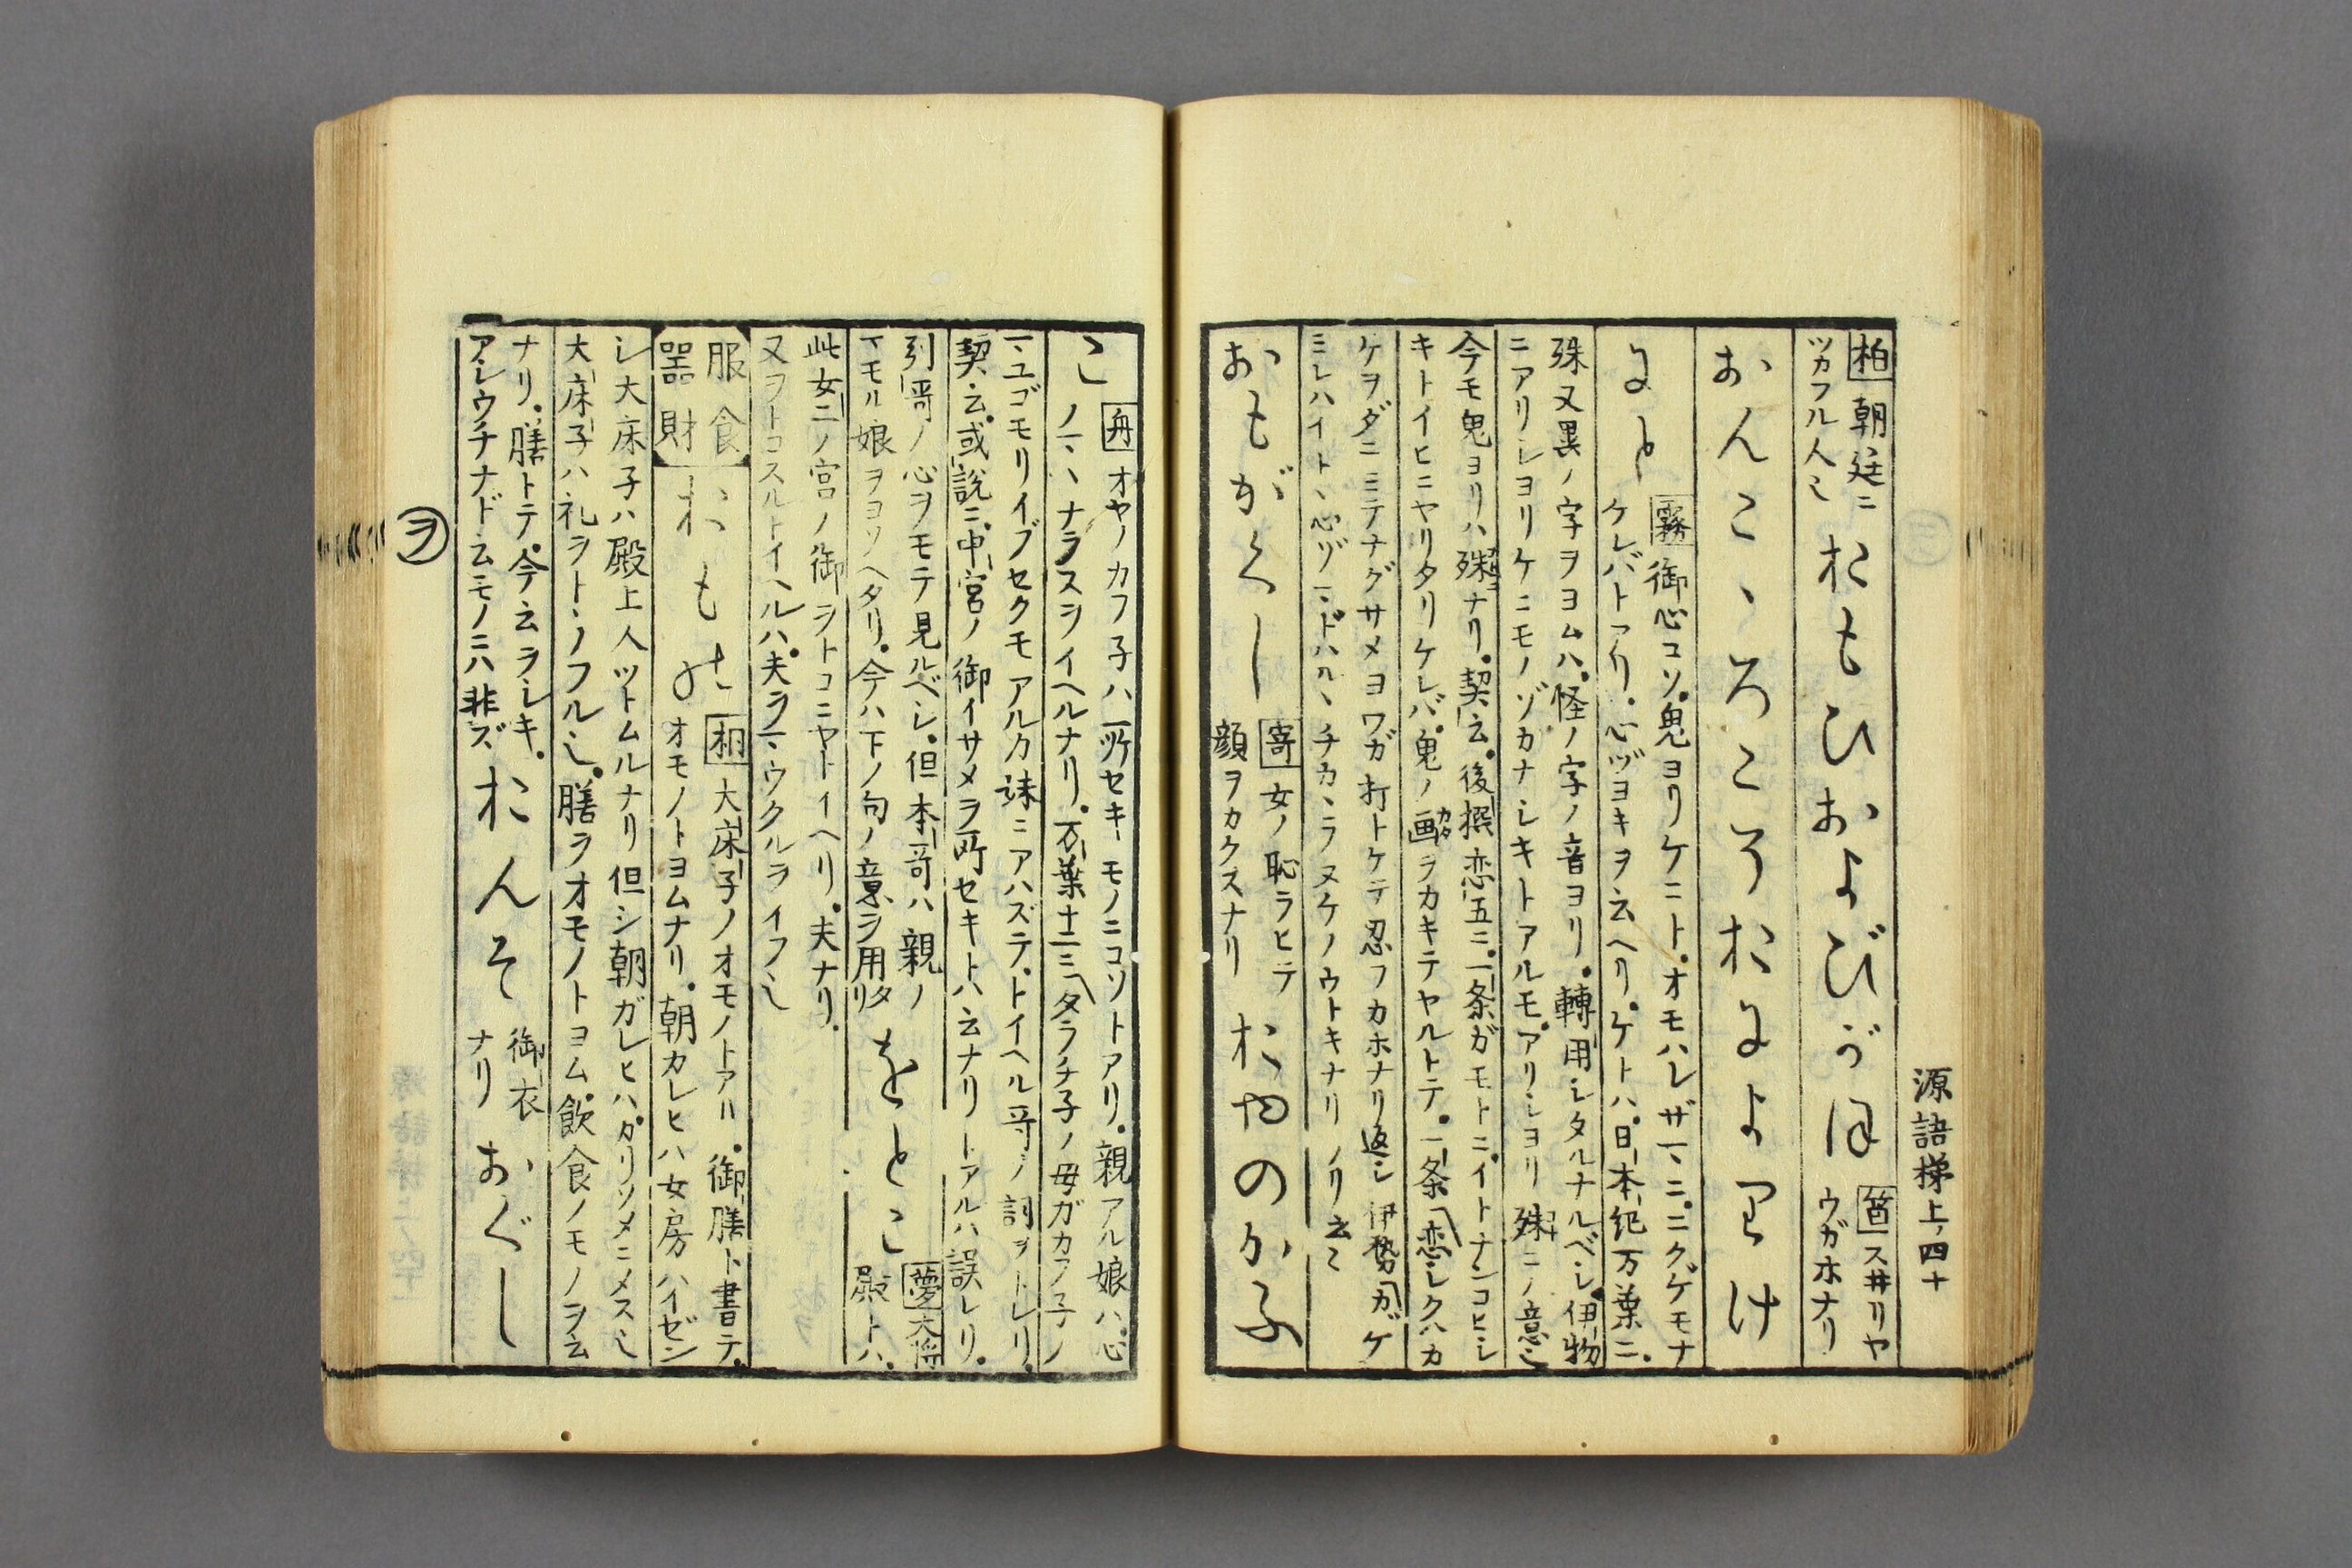 源語梯上ノ四十
柏 朝廷ニ
ツカフル人也
おもひおよびがほ
筥 スヰリヤ
ウガホナリ
おんこゝろこそおによりけ
にと
霧 御心コソ。鬼ヨリケニト。オモハレザマニ。ニクゲモナ
ケレバトアリ。心ヅヨキヲ云ヘリ。ケトハ。日本紀万葉ニ。
殊又異ノ字ヲヨムハ。怪ノ字ノ音ヨリ。轉用シタルナルベシ。伊物
ニアリシヨリケニモノゾカナシキトアルモ。アリシヨリ殊ニノ意也
今モ鬼ヨリハ殊ナリ。契云。後撰恋五ニ。一条ガモトニ。イトナンコヒシ
キトイヒニヤリタリケレバ。鬼ノ画ヲカキテヤルトテ。一条
恋シクハカ
ケヲダニミテナグサメヨワガ打トケテ忍フカホナリ返シ伊勢
カゲ
ミレハイトヽ心ゾマドハルヽチカヽラヌケノウトキナリケリ云々
おもがくし
寄 女ノ恥ラヒテ
顔ヲカクスナリ
おやのかふ
こ
舟 オヤノカフ子ハ所セキモノニコソトアリ。親アル娘ハ。心
ノマヽナラヌヲイヘルナリ。万葉十二ニ
タラチ子ノ母ガカフ子ノ
マユゴモリイブセクモアルカ妹ニアハズテ。トイヘル哥ノ詞ヲトレリ。
契云。或説ニ。中宮ノ御イサメヲ所セキトハ云ナリトアルハ誤レリ。
引哥ノ心ヲモテ見ルベシ。但本哥ハ親ノ
マモル娘ヲヨソヘタリ。今ハ下ノ句ノ意ヲ用タリ
をとこ
夢 大将
殿トハ。
此女二ノ宮ノ御ヲトコニヤトイヘリ。夫ナリ。
又ヲトコスルトイヘルハ。夫ヲマウクルヲイフ也
服食
器財
おもの
桐 大床子ノオモノトアル。御膳ト書テ。
オモノトヨムナリ。朝カレヒハ女房ハイゼン
シ大床子ハ殿上人ツトムルナリ但シ朝ガレヒハ。カリソメニメス也
大床子ハ礼ヲトヽノフル也。膳ヲオモノトヨム。飲食ノモノヲ云
ナリ。膳トテ。今云ヲシキ。
アシウチナド云モノニハ非ズ
おんそ
御衣
ナリ
おぐし
ヲ